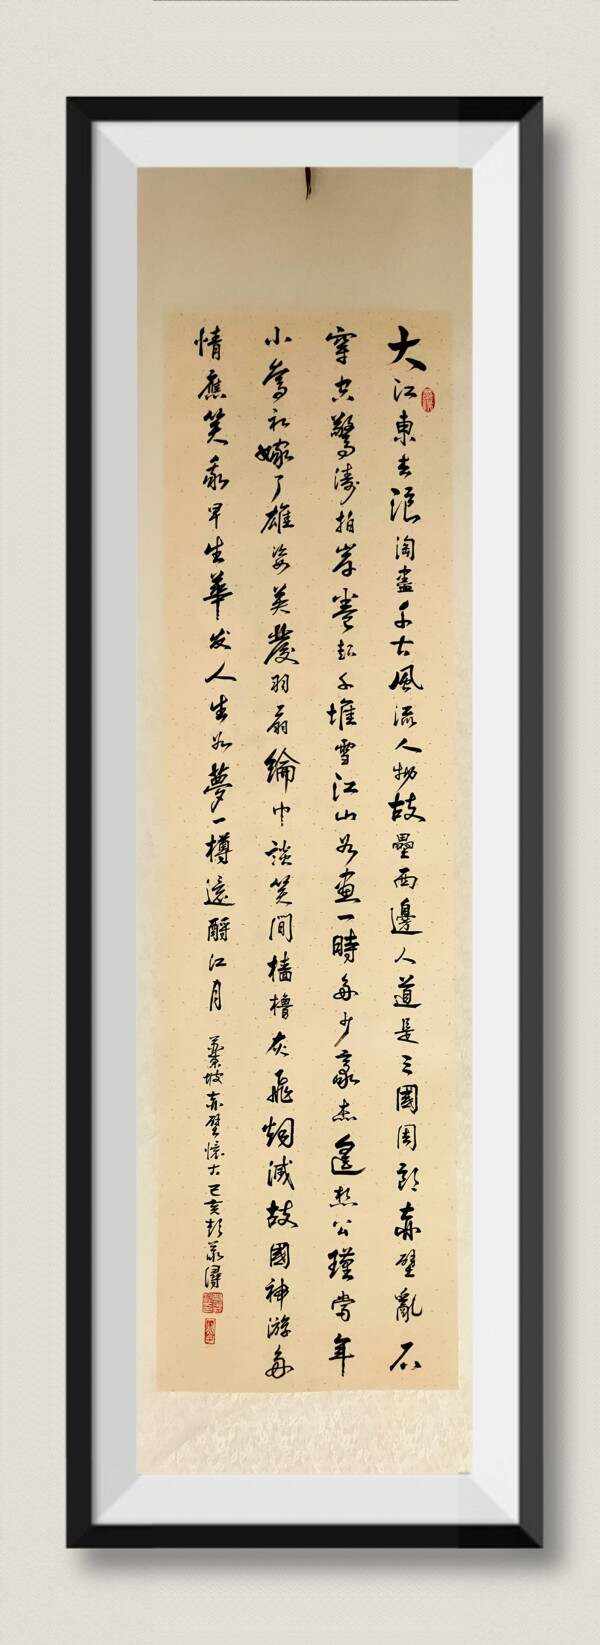 大江東去浪淘盡千古風流人物故壘西邊人道是三國周郎赤壁亂石
穿空驚濤拍岸卷起千堆雪江山如畫一時多少豪杰遙想公瑾當年
小喬初嫁了雄姿英發羽扇綸巾談笑間檣櫓灰飛烟滅故國神游多
情應笑我早生華发人生如夢一樽還酹江月
坡赤壁懷古己亥彭